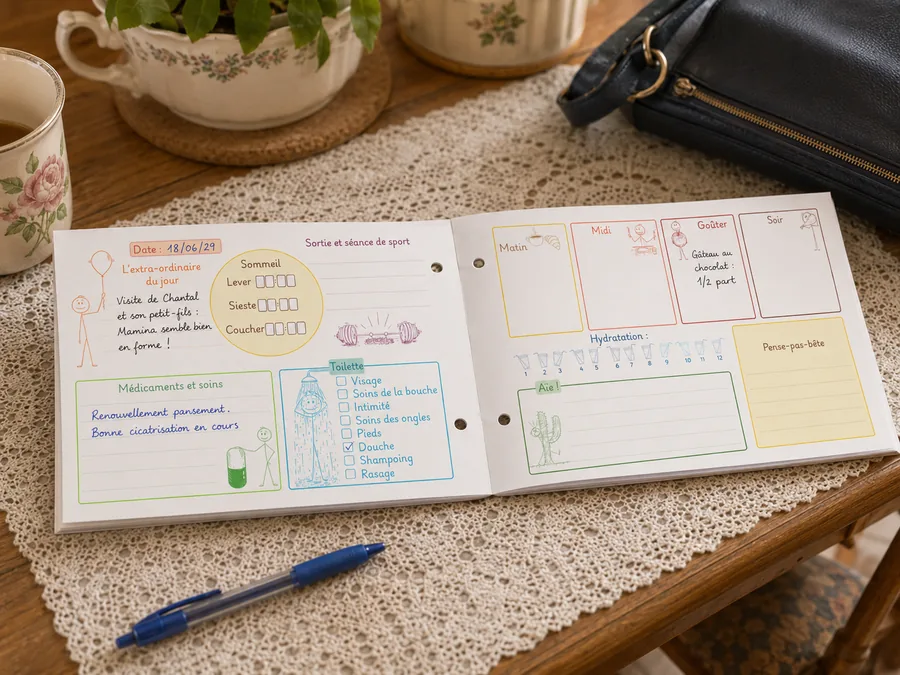 Date : 18/06/29
L'extra-ordinaire
du jour
Visite de Chantal
et son petit-fils :
Mamina semble bien
en forme !
Sommeil
Lever
Sieste
Coucher
Sortie et séance de sport
Médicaments et soins
Renouvellement pansement.
Bonne cicatrisation en cours
Toilette
Visage
Soins de la bouche
Intimité
Soins des ongles
Pieds
Douche
Shampoing
Rasage
Matin
Midi
Goûter
Gâteau au
chocolat :
1/2 part
Soir
Hydratation :
1 2 3 4 5 6 7 8 9 10 11 12
Pense-pas-bête
Aïe !